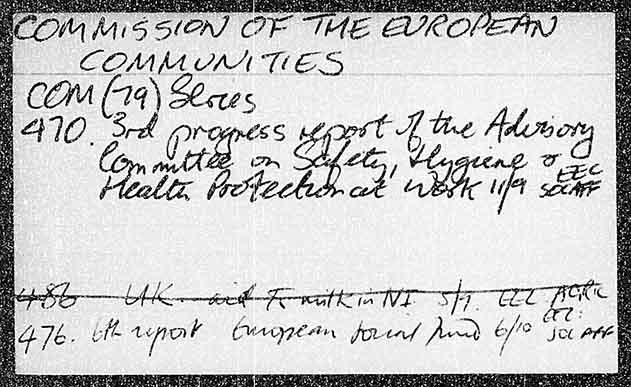 COMMISSION OF THE EUROPEAN
COMMUNITIES
COM (79) Series
470. 3rd progress report of the Advisory
Committee on Safety, Hygiene &
Health Protection at Work 11/9 EEC SOC AFF
486 UK aid to milk in NI 5/9. EEC AGRIC
476. 6th report European Social Fund 6/10 EEC: SOC AFF